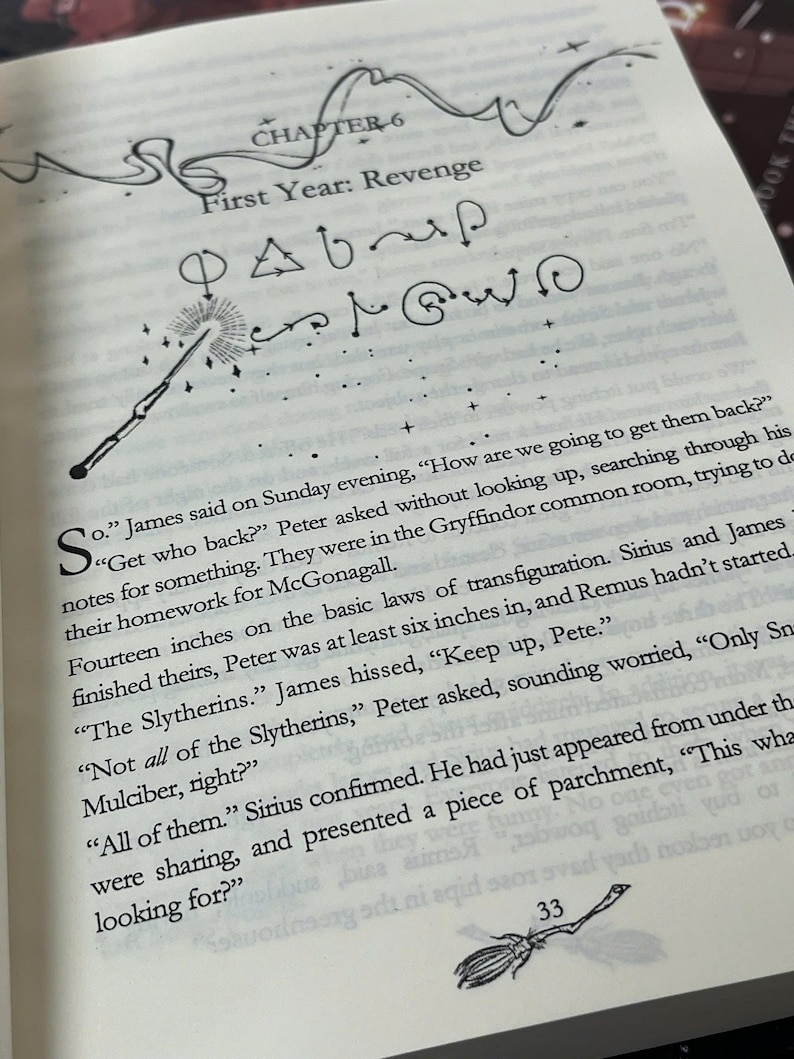 CHAPTER 6
First Year: Revenge
So.” James said on Sunday evening, “How are we going to get them back?”
“Get who back?” Peter asked without looking up, searching through his
notes for something. They were in the Gryffindor common room, trying to do
their homework for McGonagall.
Fourteen inches on the basic laws of transfiguration. Sirius and James
finished theirs, Peter was at least six inches in, and Remus hadn’t started.
“The Slytherins.” James hissed, “Keep up, Pete.”
“Not all of the Slytherins,” Peter asked, sounding worried, “Only
Mulciber, right?”
“All of them.” Sirius confirmed. He had just appeared from under
were sharing, and presented a piece of parchment, “This
looking for?”
33